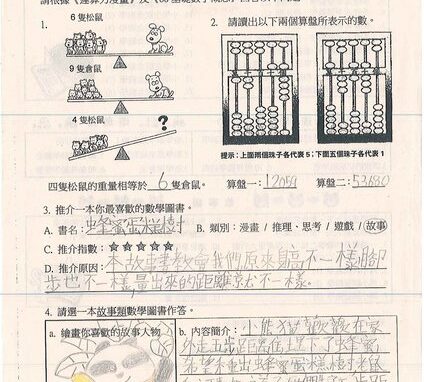 1.
6 隻松鼠
9 隻倉鼠
4 隻松鼠
?
2. 請讀出以下兩個算盤所表示的數。
提示：上面兩個珠子各代表 5；下面五個珠子各代表 1
四隻松鼠的重量相等於 6 隻倉鼠。 算盤一: 12059 算盤二: 53680
3. 推介一本你最喜歡的數學圖書。
A. 書名: 蜂蜜蛋糕樹 B. 類別：漫畫 / 推理、思考 / 遊戲 / 故事
C. 推介指數：☆☆☆☆☆
D. 推介原因: 本故事書教會我們原來身高不一樣腳
步也不一樣,量出來的距離就不一樣。
4. 請選一本故事類數學圖書作答。
a. 繪畫你喜歡的故事人物
b. 內容簡介: 小熊
外走五步